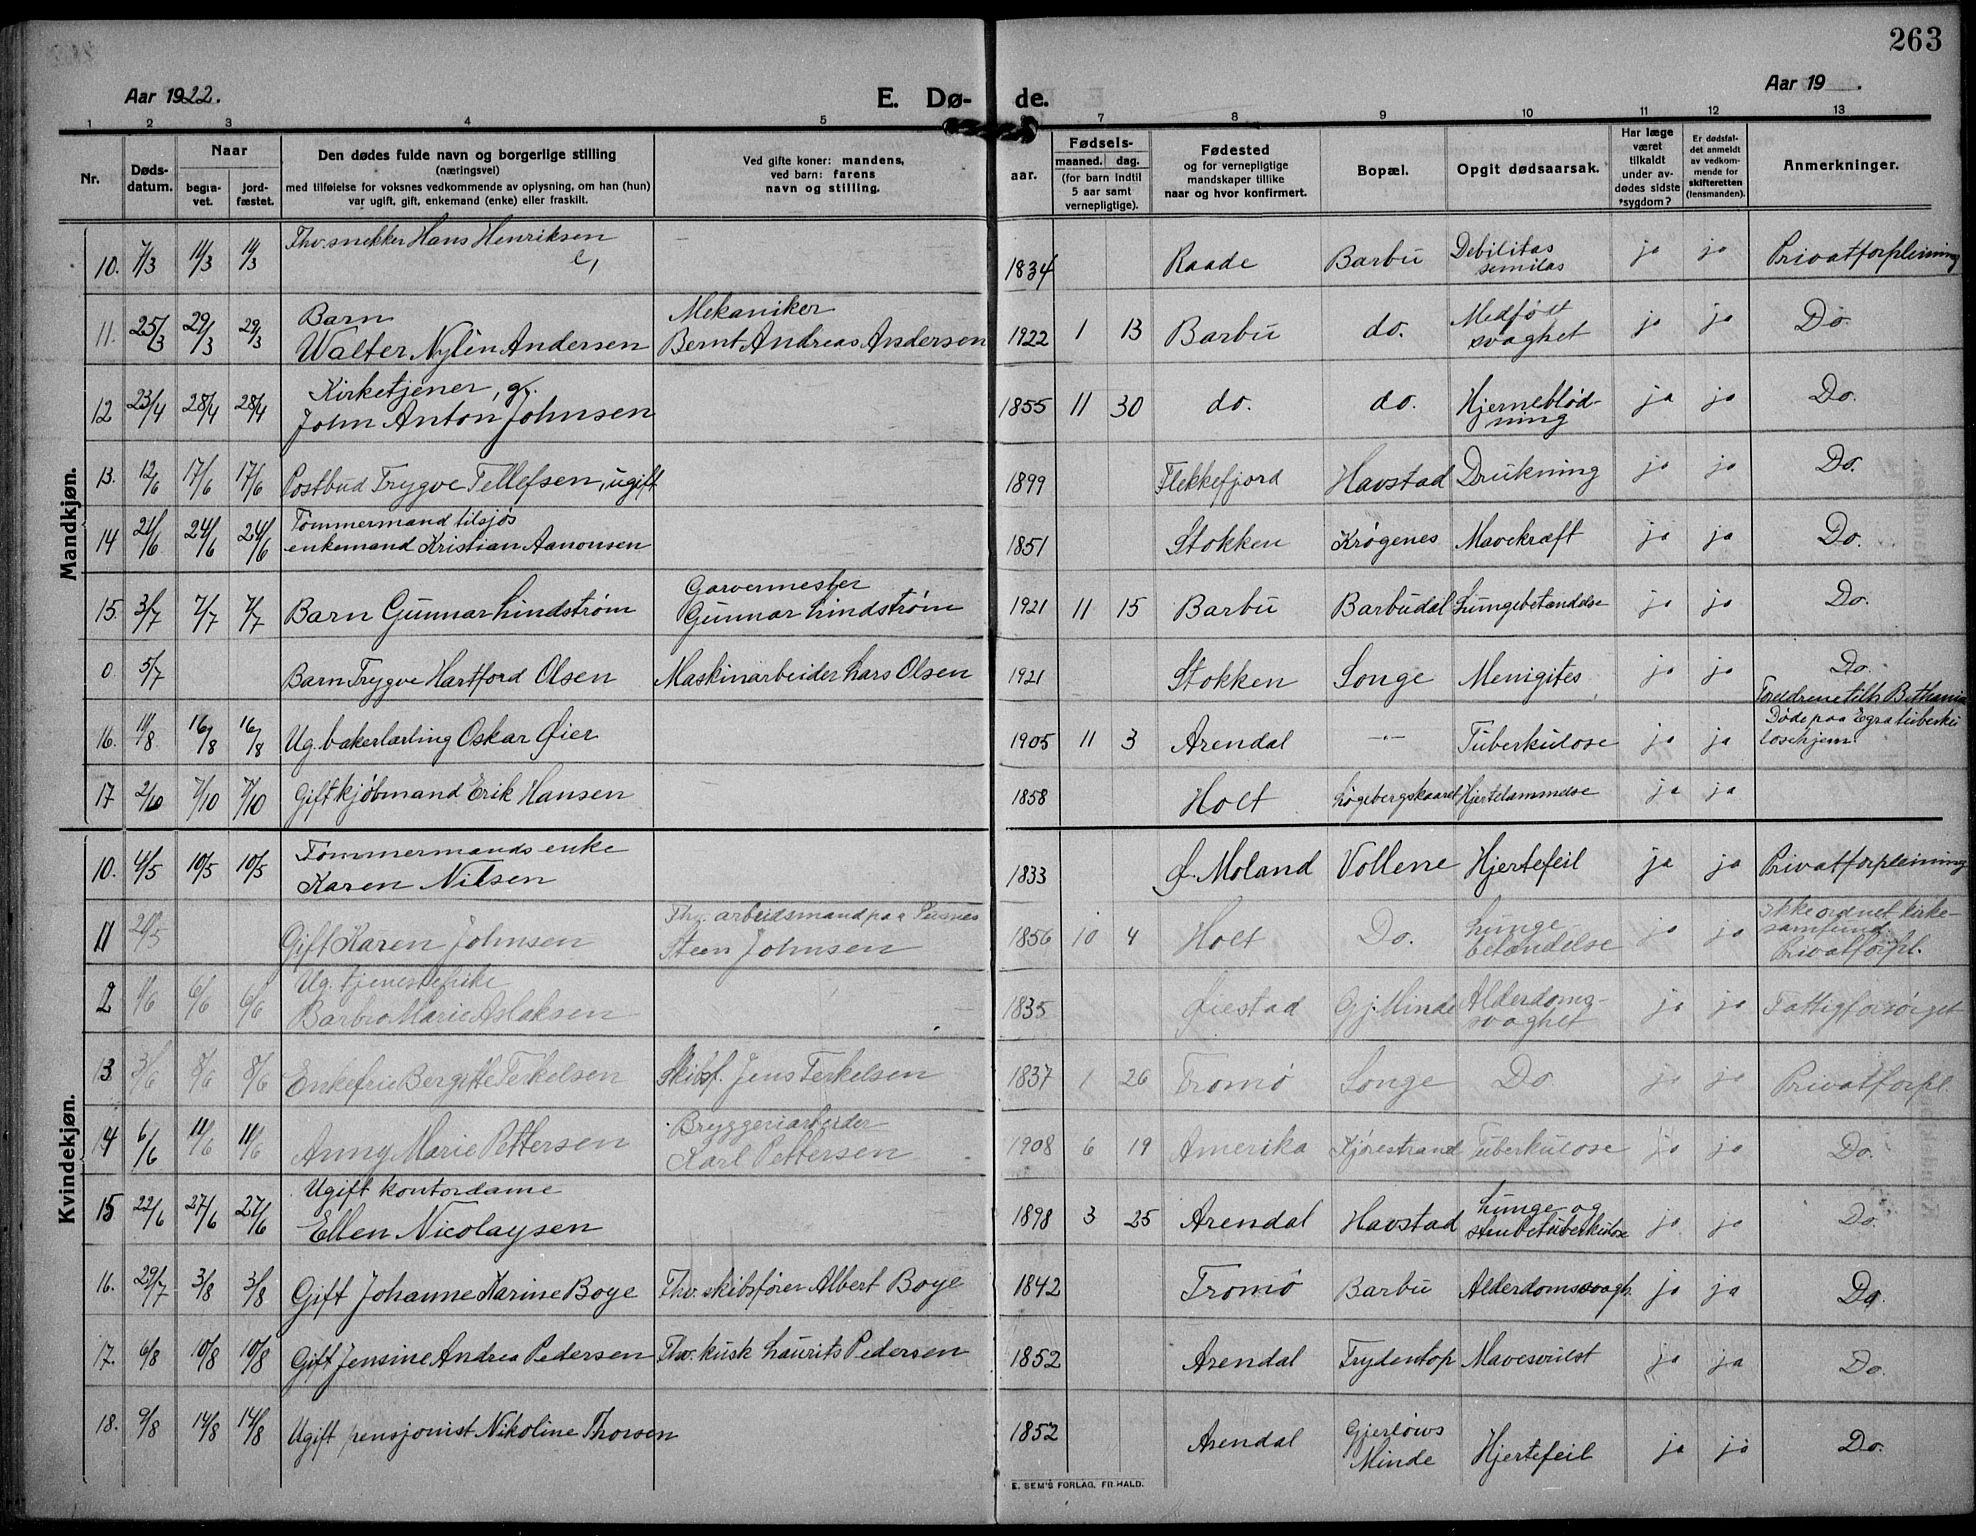 263
Aar 1922.
E. Dø-
de.
Aar 19 .
1 2 3 4 5 7 8 9 10 11 12 13
Nr.
Døds-
datum.
Naar
begra-
vet.
jord-
fæstet.
Den dødes fulde navn og borgerlige stilling
(næringsvei)
med tilføielse for voksnes vedkommende av oplysning, om han (hun)
var ugift, gift, enkemand (enke) eller fraskilt.
Ved gifte koner: mandens,
ved barn: farens
navn og stilling.
aar.
Fødsels-
maaned. dag.
(for barn indtil
5 aar samt
vernepligtige).
Fødested
og for vernepligtige
mandskaper tillike
naar og hvor konfirmert.
Bopæl.
Opgit dødsaarsak.
Har læge
været
tilkaldt
under av-
dødes sidste
sygdom?
Er dødsfal-
det anmeldt
av vedkom-
mende for
skifteretten
(lensmanden).
Anmerkninger.
Mandkjøn.
10. 7/3 11/3 11/3 Fhv. snekker Hans Henriksen e, — 1834 Raade Barbu Debilitas senilas ja ja Privatforpleining
11. 25/3 29/3 29/3 Barn Walter Nylin Andersen Mekaniker Bernt Andreas Andersen 1922 1 13 Barbu do. Medfødt svaghet ja ja Do.
12 23/4 28/4 28/4 Kirketjener, g. John Anton Johnsen 1855 11 30 do. do. Hjerneblød- ning ja ja Do.
13. 12/6 17/6 17/6 Postbud Trygve Tellefsen, ugift 1899 Flekkefjord Havstad Drukning ja ja Do.
14 21/6 24/6 24/6 Tømmermand tilsjøs enkemand Kristian Aanonsen 1851 Stokken Krøgenes Mavekræft ja ja Do.
15. 3/7 7/7 7/7 Barn Gunnar Lindstrøm Garvermester Gunnar Lindstrøm 1921 11 15 Barbu Barbudal Lungebetændelse ja ja Do.
0 5/7 Barn Trygve Hartford Olsen Maskinarbeider Lars Olsen 1921 Stokken Songe Menigites ja ja Do. Foreldrene tilh. Bethania
16. 11/8 16/8 16/8 Ug. bakerlærling Oskar Øier 1905 11 3 Arendal —"— Tuberkulose ja ja Døde paa Egra tuberku losehjem.
17 2/10 7/10 7/10 Gift kjøbmand Erik Hansen 1858 Holt Løgebergskaaret Hjertelammelse ja ja
Kvindekjøn.
10. 4/5 10/5 10/5 Tømmermands enke Karen Nilsen 1833 Ø. Moland Vollene Hjertefeil ja ja Privatforpleining
11 21/5 Gift Karen Johnsen Fhv. arbeidsmand paa Pusnes Steen Johnsen 1856 10 4 Holt Do. Lunge- betændelse ja ja Ikke ordnet kirke- samfund. Privatforpl.
2 1/6 6/6 6/6 Ug. tjenestepike Barbro Marie Aslaksen 1835 Øiestad Gj. Minde Alderdoms- svaghet ja ja Fattigforsørget
13 3/6 8/6 8/6 Enkefrue Bergitte Terkelsen Skibsf. Jens Terkelsen 1837 1 26 Tromø Songe Do ja ja Privatforpl.
14 6/6 11/6 11/6 Anny Marie Pettersen Bryggeriarbeider Karl Pettersen 1908 6 19 Amerika Kjørestrand Tuberkulose ja ja Do.
15 22/6 27/6 27/6 Ugift kontordame Ellen Nicolaysen 1898 3 25 Arendal Havstad Lunge og strubetuberkulose ja ja Do.
16. 29/7 3/8 3/8 Gift Johanne Karine Boye Fhv. skibsfører Albert Boye 1842 Tromø Barbu Alderdomssvagh. ja ja Do.
17. 6/8 10/8 10/8 Gift Jensine Andrea Pedersen Fhv. kusk Laurits Pedersen 1852 Arendal Frydentop Mavesvulst ja ja Do.
18. 9/8 14/8 14/8 Ugift pensjonist Nikoline Thorsen 1852 Arendal Gjerløws Minde Hjertefeil ja ja Do.
E. SEM'S FORLAG, FR.HALD.